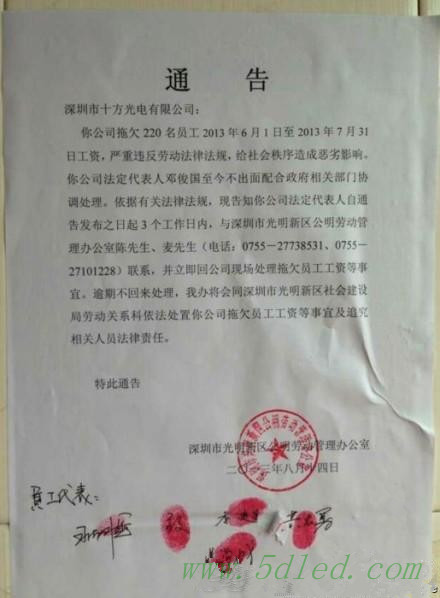 通 告
深圳市十方光电有限公司：
你公司拖欠 220 名员工 2013 年 6 月 1 日至 2013 年 7 月 31
日工资，严重违反劳动法律法规，给社会秩序造成恶劣影响。
你公司法定代表人邓俊国至今不出面配合政府相关部门协
调处理。依据有关法律法规，现告知你公司法定代表人自通
告发布之日起 3 个工作日内，与深圳市光明新区公明劳动管
理办公室陈先生、麦先生（电话：0755－27738531、0755－
27101228）联系，并立即回公司现场处理拖欠员工工资等事
宜。逾期不回来处理，我办将会同深圳市光明新区社会建设
局劳动关系科依法处置你公司拖欠员工工资等事宜及追究
相关人员法律责任。
特此通告
深圳市光明新区公明劳动管理办公室
二〇一三年八月十四日
员工代表：
www.5dled.com